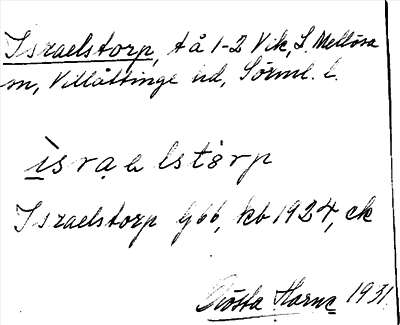 Israelstorp, tå 1-2 Vik, L. Mellösa
sn, Villåttinge hd, Sörml. l.
israelstårp
Israelstorp G66, kb 1924, ek
Gösta Harne 1931